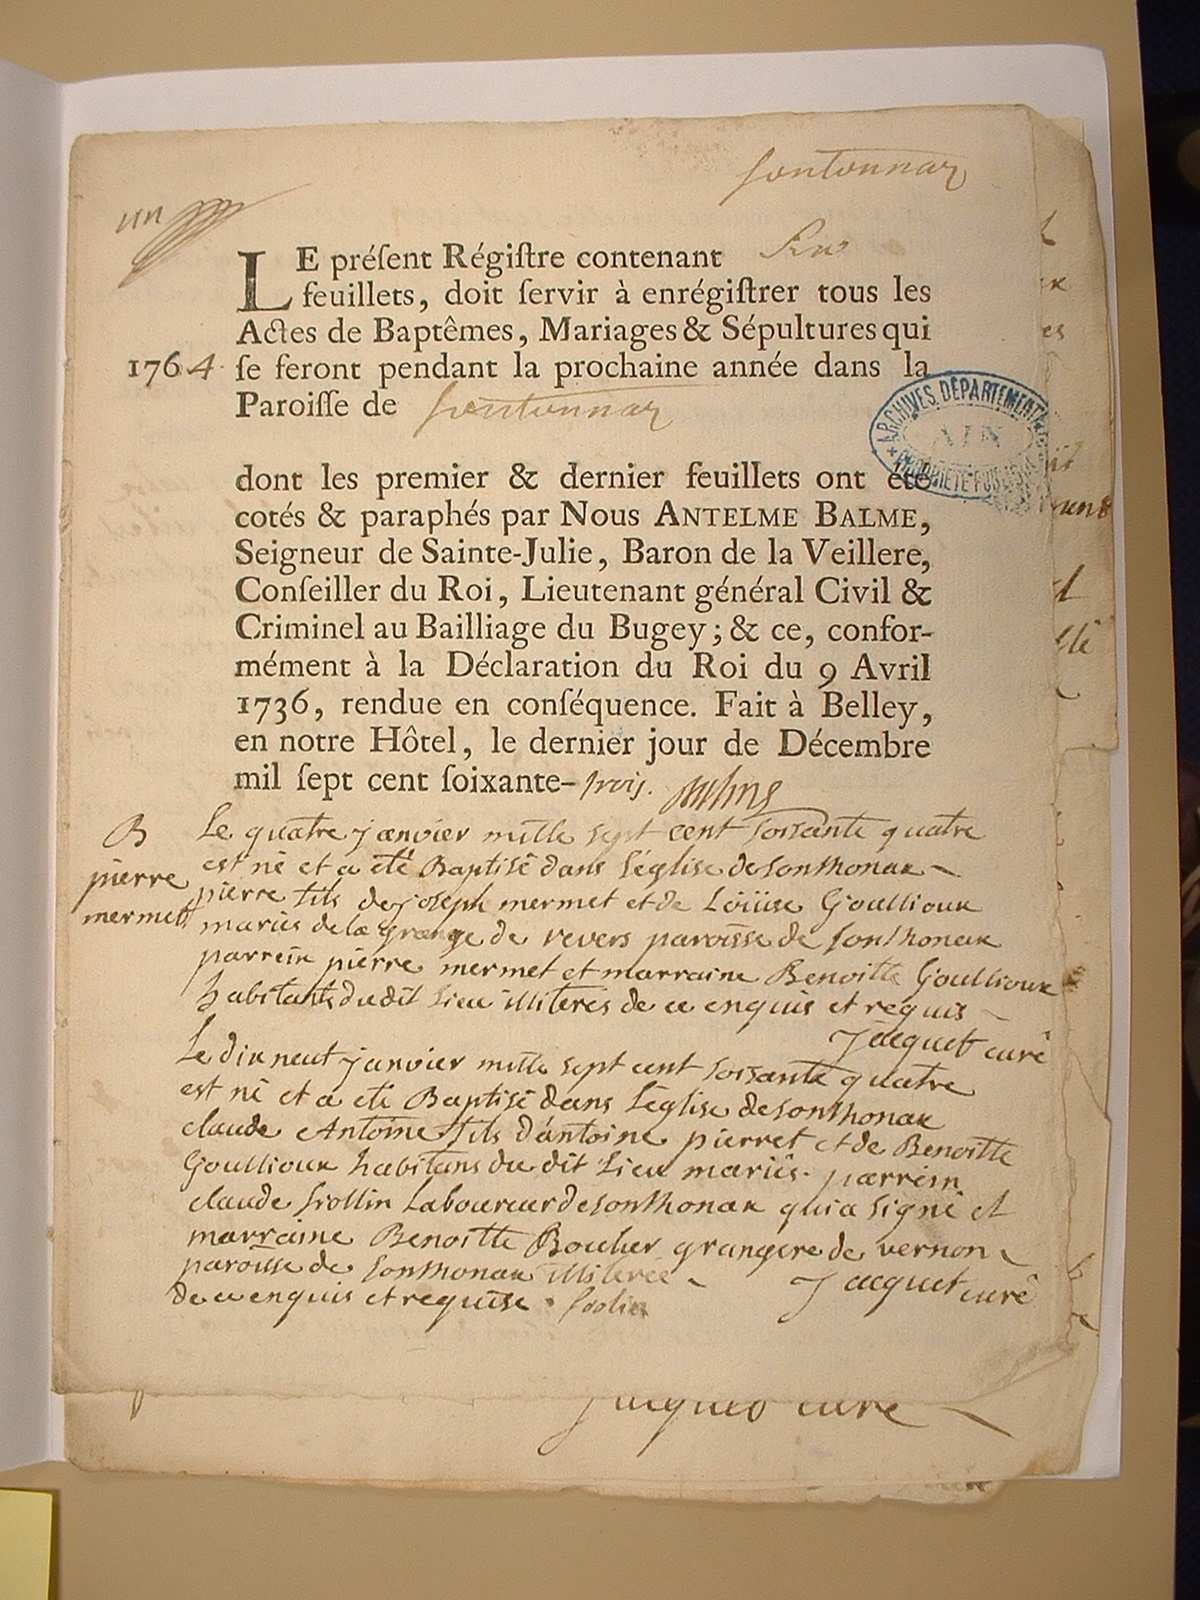 sontonnax
un
LE préſent Régiſtre contenant six
feuillets, doit ſervir à enrégiſtrer tous les
Actes de Baptêmes, Mariages & Sépultures qui
1764 ſe feront pendant la prochaine année dans la
Paroiſſe de sontonnax
ARCHIVES DÉPARTEMENTALES
AIN
PROPRIÉTÉ PUBLIQUE
dont les premier & dernier feuillets ont été
cotés & paraphés par Nous ANTELME BALME,
Seigneur de Sainte-Julie, Baron de la Veillere,
Conſeiller du Roi, Lieutenant général Civil &
Criminel au Bailliage du Bugey ; & ce, confor-
mément à la Déclaration du Roi du 9 Avril
1736, rendue en conſéquence. Fait à Belley,
en notre Hôtel, le dernier jour de Décembre
mil ſept cent ſoixante-trois.
B
pierre
mermet
Le quatre janvier mille sept cent soissante quatre
est né et a été Baptisé dans l'église de sonthonax
pierre fils de joseph mermet et de Loüise Goullioux
mariés de la grange de revers paroisse de sonthonax
parrein pierre mermet et marraine Benoitte Goullioux
habitants du dit lieu illiteres de ce enquis et requis
Jacquet curé
Le dix neuf janvier mille sept cent soissante quatre
est né et a eté Baptisé dans l'église de sonthonax
claude Antoine fils d'antoine pierret et de Benoitte
Goullioux habitans du dit lieu mariés. parrein
claude Laboureur de sonthonax qui a signé et
marraine Benoitte Boucher grangere de vernon
paroisse de sonthonax illiteree
de ce enquis et requise
Jacquet curé
Jacquet curé